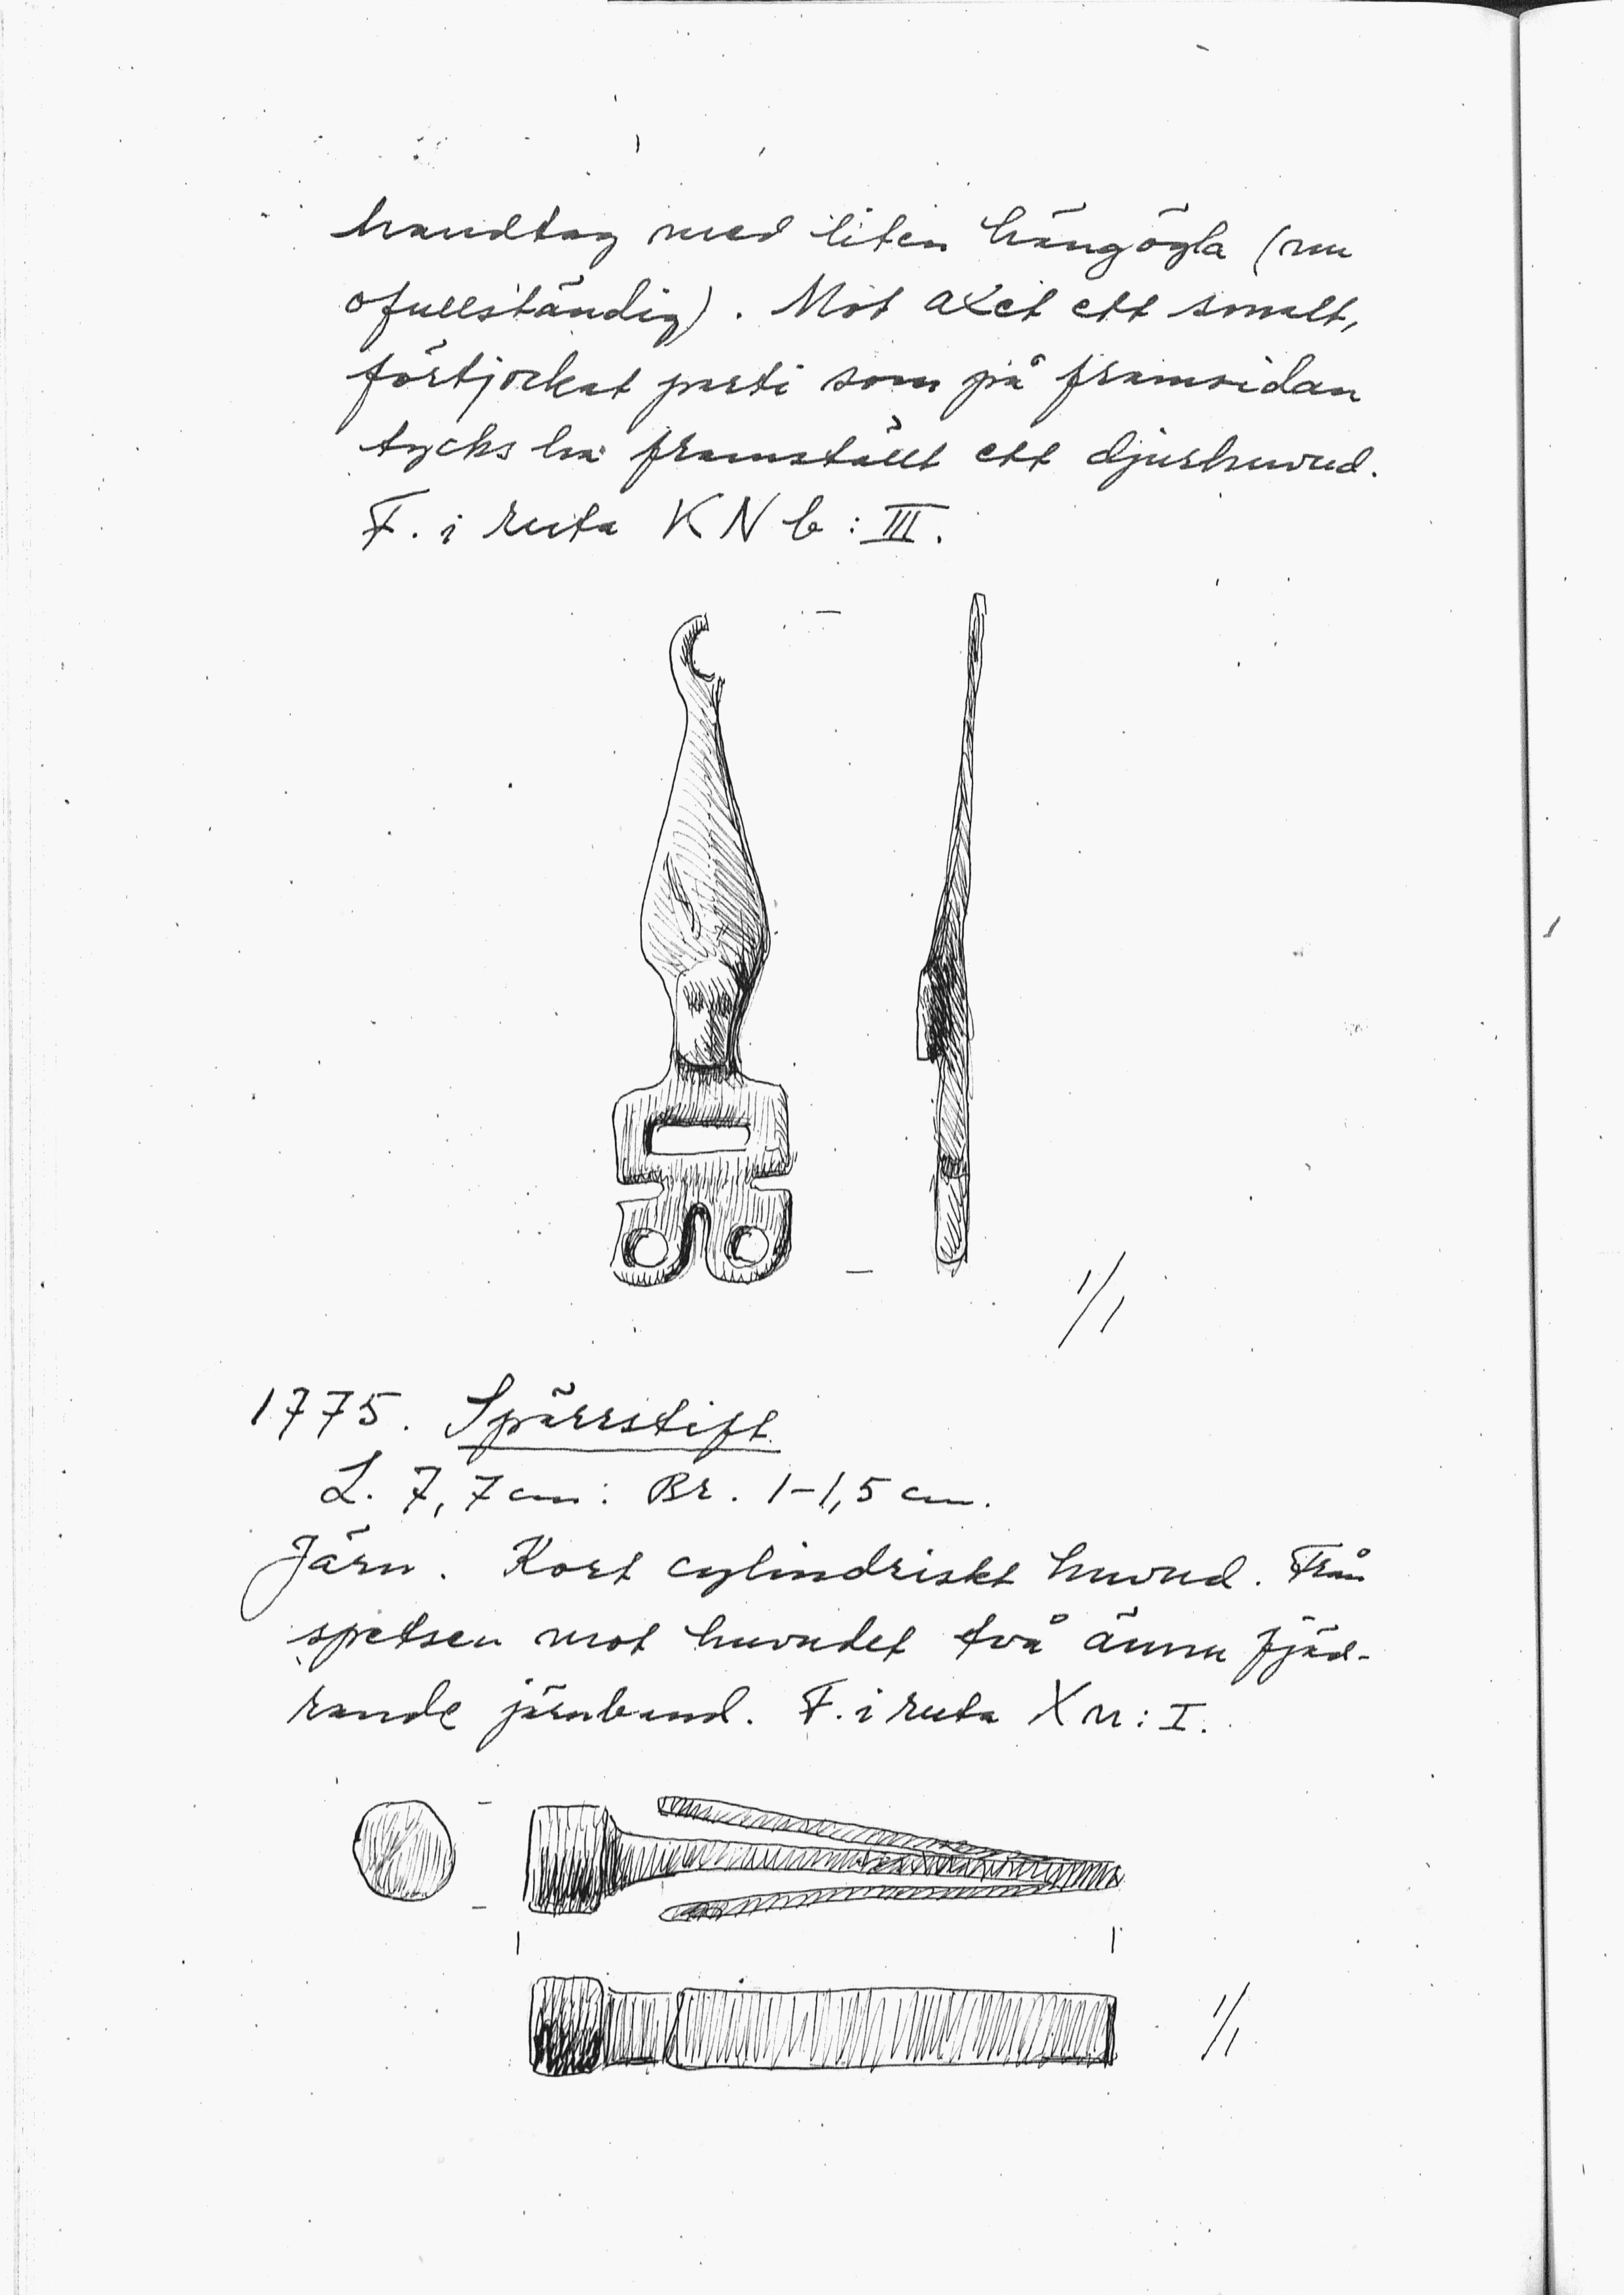 handtag med liten hängögla (nu
ofullständig). Mot axet ett smalt,
förtjockat parti som på framsidan
tycks ha framställt ett djurhuvud.
F. i ruta KN b : III.
1/1
1775. Spärrstift
L. 7,7 cm: Br. 1-1,5 cm.
Järn. Kort cylindriskt huvud. Från
spetsen mot huvudet två ännu fjäd-
rande järnband. F. i ruta X n : I.
1/1